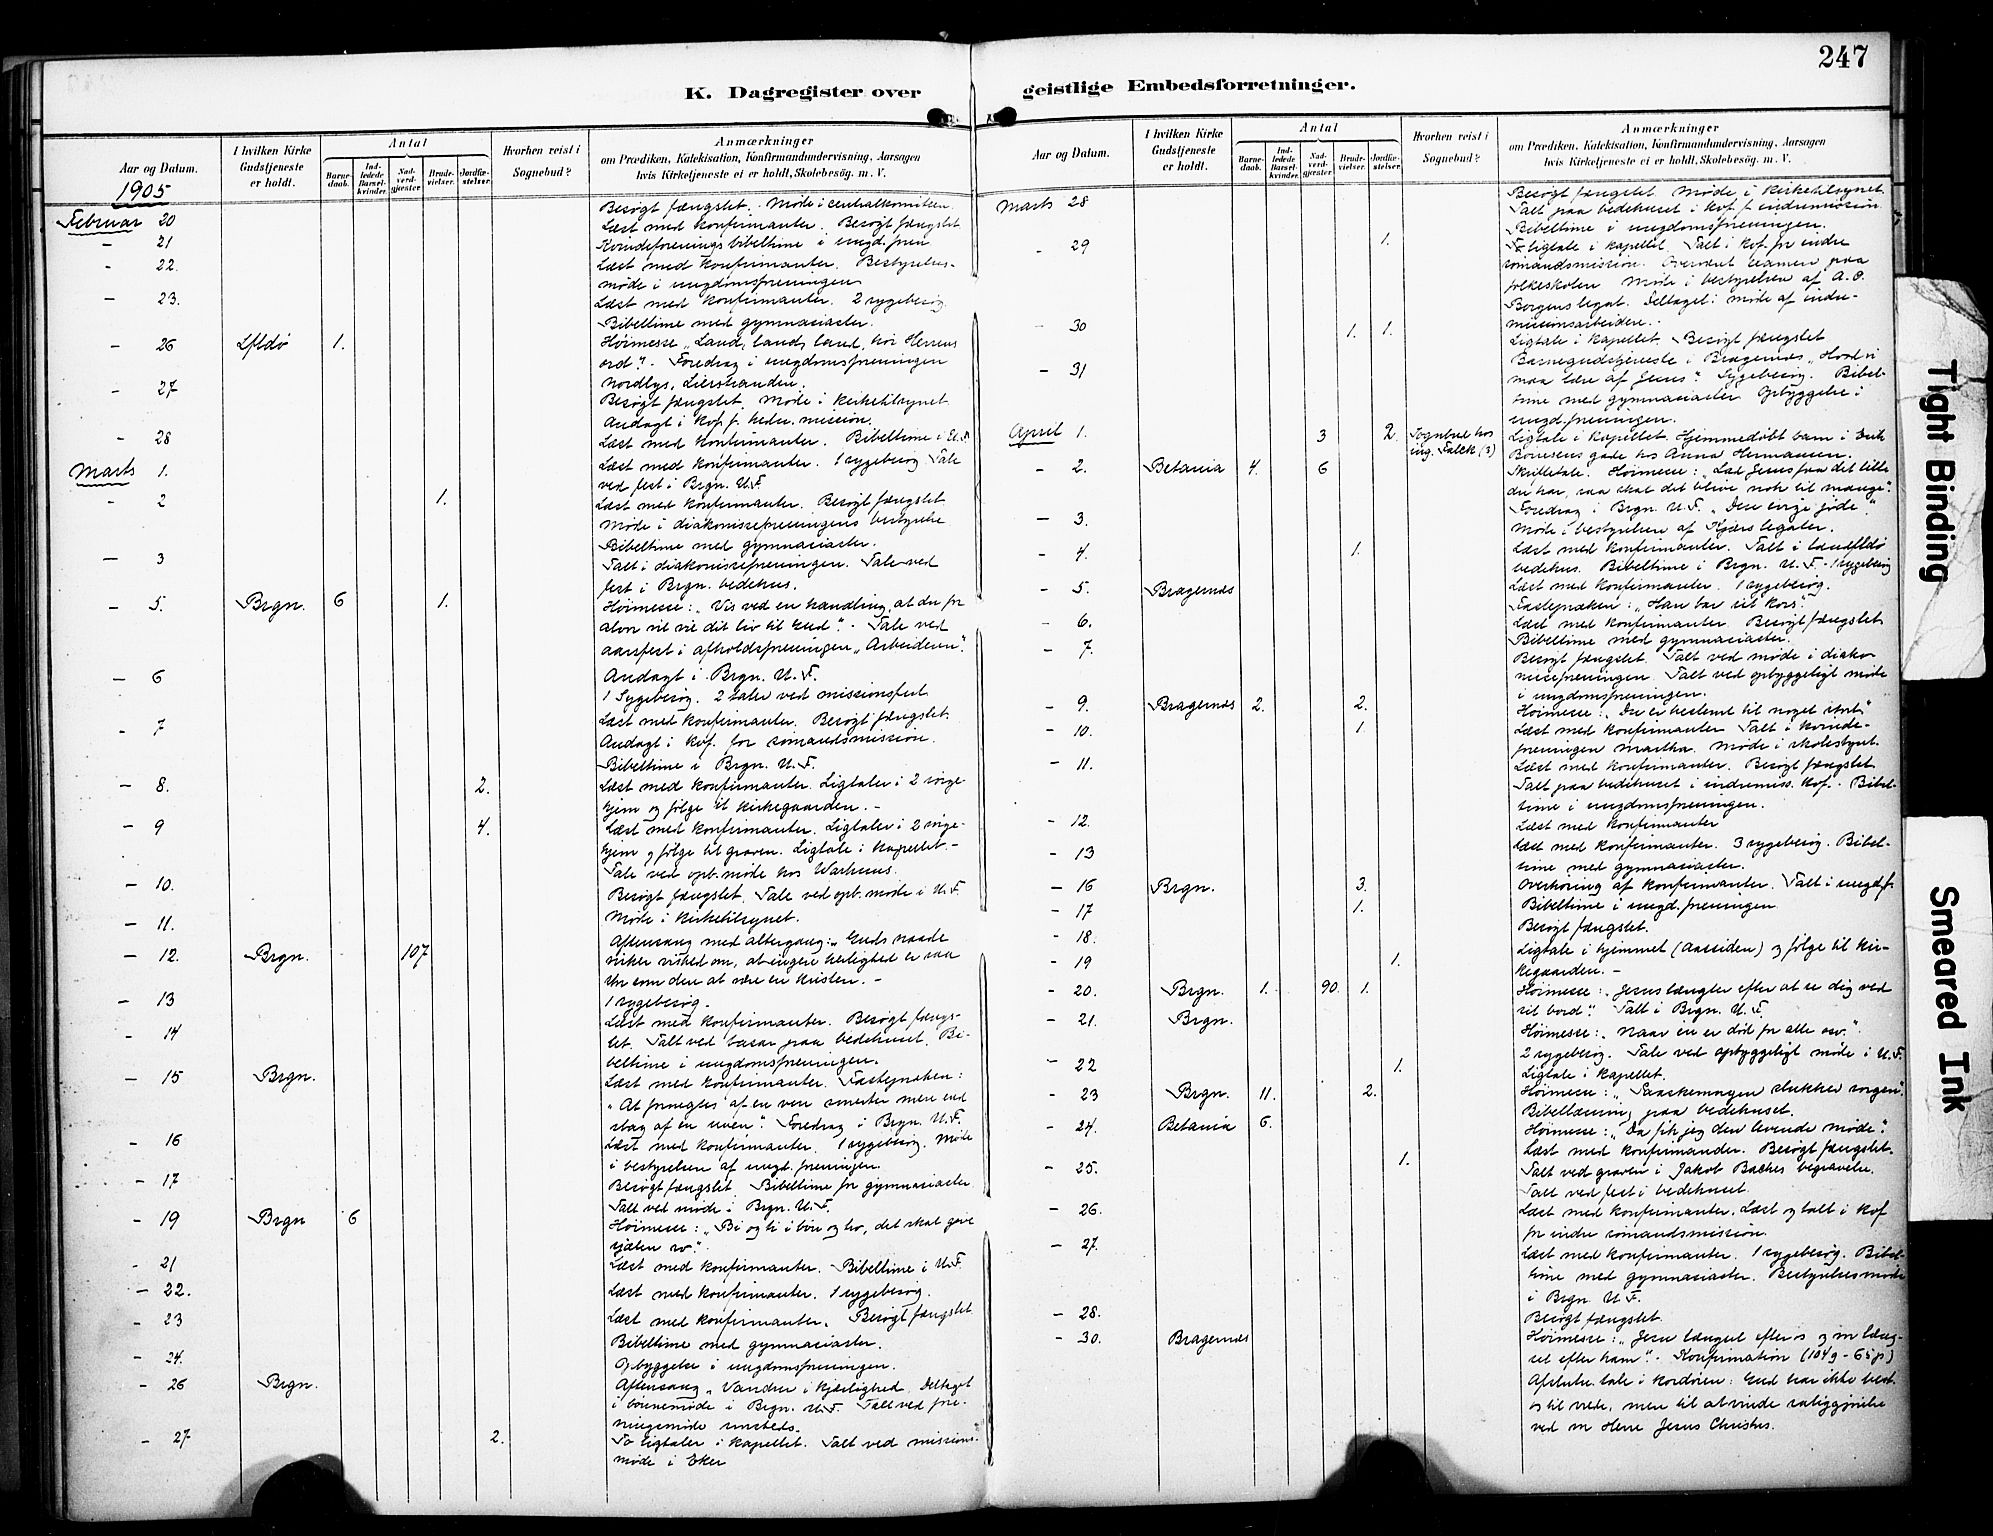 247
K. Dagregister over geistlige Embedsforretninger.
Aar og Datum.
I hvilken Kirke Gudstjeneste er holdt.
Antal
Barnedaab.
Indledede Barselkvinder.
Nadverdgjester
Brudevielser.
Jordfæstelser.
Hvorhen reist i Sognebud?
Anmærkninger
om Prædiken, Katekisation, Konfirmandundervisning, Aarsagen
hvis Kirketjeneste ei er holdt, Skolebesøg. m. V.
1905
Februar 20 Besøgt fængslet. Møde i centralkomiteen.
- 21 Læst med konfirmanter. Besøgt fængslet
Kvindeforenings bibeltime i ungd.fren
- 22. Læst med konfirmanter. Bestyrelses-
møde i ungdomsforeningen
- 23. Læst med konfirmanter. 2 sygebesøg.
Bibeltime med gymnasiaster.
- 26 Lfldø 1. Høimesse „Land, land, land, hør Herrens
ord". - Foredrag i ungdomsforeningen
Nordlys, Lierstranden.
- 27 Besøgt fængslet. Møde i kirketilsynet
Andagt i Kof. f. heden. mission.
- 28 Læst med konfirmanter. Bibeltime i U.F.
Marts 1. Læst med konfirmanter. 1 sygebesøg Tale
ved fest i Brgn. U.F.
- 2 1. Læst med konfirmanter. Besøgt fængslet
Møde i diakonisseforeningens bestyrelse
Bibeltime med gymnasiaster.
- 3 Talt i diakonisseforeningen. Tale ved
fest i Brgn. bedehus.
- 5. Brgn. 6 1. Høimesse: „Vis ved en handling, at du for
alvor vil vie dit liv til Gud". - Tale ved
aarsfest i afholdsforeningen „Arbeideren".
- 6 Andagt i Brgn. U.F.
1 Sygebesøg. 2 taler ved missionsfest
- 7 Læst med konfirmanter. Besøgt fængslet.
Andagt i Kof. for sømandsmission.
Bibeltime i Brgn. U.F.
- 8. 2. Læst med konfirmanter. Ligtaler i 2 sørge-
hjem og følge til kirkegaarden. -
- 9 4. Læst med konfirmanter. Ligtaler i 2 sørge-
hjem og følge til graven. Ligtale i kapellet. -
Tale ved opb. møde hos Warhuus.
- 10. Besøgt fængslet. Tale ved opb. møde i U.F.
- 11. Møde i kirketilsynet.
- 12. Brgn. 107 Aftensang med altergang: „Guds naade
virker vished om, at ingen herlighed er saa
stor som den at være en kristen. -
- 13 1 sygebesøg.
- 14 Læst med konfirmanter. Besøgt fængs-
let. Talt ved basar paa bedehuset. Bi-
beltime i ungdomsforeningen.
- 15 Brgn. Læst med konfirmanter. Fastepræken:
„At fornegtes af en ven smerter mere end
slag af en uven". Foredrag i Brgn. U.F.
- 16 Læst med konfirmanter. 1 sygebesøg. Møde
i bestyrelsen af ungd.foreningen.
- 17 Besøgt fængslet. Bibeltime for gymnasiaster
Talt ved møde i Brgn. U.F.
- 19 Brgn 6 Høimesse: „Bi og ti i bøn og tro, det skal give
sjælen ro".
- 21 Læst med konfirmanter. Bibeltime i U.F.
- 22. Læst med konfirmanter. 1 sygebesøg.
- 23 Læst med konfirmanter. Besøgt fængslet
Bibeltime med gymnasiaster.
- 24. Opbyggelse i ungdomsforeningen.
- 26 Brgn. Aftensang „Vandrer i kjærlighed. Deltaget
i bønnemøde i Brgn. U.F. Talt ved fore-
ningsmøde smsteds.
- 27 2. To ligtaler i kapellet. Talt ved missions-
møde i Eker
Aar og Datum.
I hvilken Kirke Gudstjeneste er holdt.
Antal
Barnedaab.
Indledede Barselkvinder.
Nadverdgjester.
Brudevielser.
Jordfæstelser.
Hvorhen reist i Sognebud?
Anmærkninger
om Prædiken, Katekisation, Konfirmandundervisning, Aarsagen
hvis Kirketjeneste ei er holdt, Skolebesøg. m. V.
Marts 28 Besøgt fængslet. Møde i kirketilsynet
Talt paa bedehuset i Kof. f. indremission
Bibeltime i ungdomsforeningen.
- 29 1. To ligtale i kapellet. Talt i Kof. for indre
sømandsmission. Overværet examen paa
folkeskolen Møde i bestyrelsen af A.O.
Borgens legat. Deltaget i møde af indre-
missionsarbeidere.
- 30 1. 1. Ligtale i kapellet. Besøgt fængslet
- 31 Barnegudstjeneste i Bragernæs „Hvad vi
maa lære af Jesus". Sygebesøg. Bibel-
time med gymnasiaster Opbyggelse i
ungd.foreningen.
April 1. 3 2. Sognebud hos ing. Falck (3) Ligtale i kapellet. Hjemmedøbt barn i
gade hos Anna Hermansen.
- 2. Betania 4. 6 Skriftetale. Høimesse: „Lad Jesus faa det lille
du har, saa skal det blive nok til mange".
Foredrag i Brgn. U.F. „Den evige jøde".
- 3. Møde i bestyrelsen af Kjærs legater.
- 4. 1. Læst med konfirmanter. Talt i Landfldø
bedehus. Bibeltime i Brgn. U.F. - 1 sygebesøg
- 5. Bragernæs Læst med konfirmanter. 1 sygebesøg.
Fastepræken: „Han bar sit kors".
- 6. Læst med konfirmanter. Besøgt fængslet
Bibeltime med gymnasiaster.
- 7. Besøgt fængslet. Talt ved møde i diako-
nisseforeningen Talt ved opbyggeligt møde
i ungdomsforeningen.
- 9. Bragernæs 2. 2. Høimesse: „Du er bestemt til noget stort".
- 10. 1. Læst med konfirmanter Talt i kvinde-
foreningen Martha. Møde i skolestyret.
- 11. Læst med konfirmanter. Besøgt fængslet
Talt paa bedehuset i indremiss. Kof. - Bibel-
time i ungdomsforeningen.
- 12. Læst med konfirmanter
- 13 Læst med konfirmanter. 3 sygebesøg. Bibel-
time med gymnasiaster.
- 16 Brgn. 3. Overhøring af konfirmanter. Talt i ungd.f.
- 17 1. Bibeltime i ungd.foreningen
- 18. Besøgt fængslet.
- 19 1. Ligtale i hjemmet (Aassiden) og følge til kir-
kegaarden. -
- 20. Brgn. 1. 90. 1. Høimesse: „Jesus længter efter at se dig ved
sit bord" Talt i Brgn. U.F.
- 21. Brgn. Høimesse: „Naar en er død for alle osv."
2 sygebesøg. Tale ved opbyggeligt møde i U.F.
- 22 1. Ligtale i kapellet.
- 23 Brgn. 11. 2. Høimesse: „Paaskemorgen slukker sorgen".
Bibellæsning paa bedehuset.
- 24. Betania 6. Høimesse: „Da fik jeg den levende møde".
- 25. 1. Læst med konfirmander. Besøgt fængslet.
Talt ved graven i Jakob Baches begravelse.
Talt ved fest i bedehuset.
- 26. Læst med konfirmanter. Læst og talt i Kof
for indre sømandsmission.
- 27. Læst med konfirmanter. 1 sygebesøg. Bibel-
time med gymnasiaster. Bestyrelsesmøde
i Brgn. U.F.
- 28. Besøgt fængslet.
- 30. Bragernæs Høimesse: „Jesu længsel efter os og vor læng-
sel efter ham". - Konfirmation (104 g - 65 p)
Afslutn. tale i kordøren: Gud har ikke best.
os til vrede, men til at vinde saliggjørelse
ved vor Herre Jesus Christus.
Tight Binding
Smeared Ink